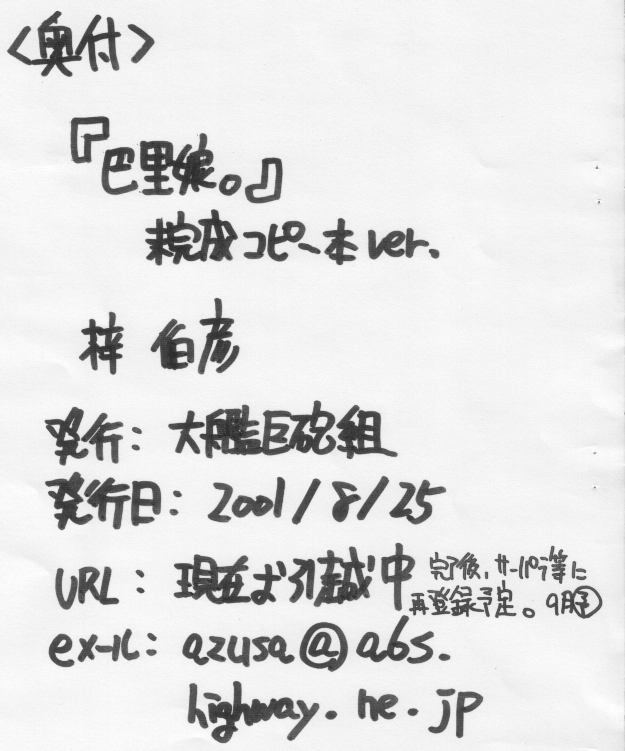 <奥付>
『巴里娘。』
未完成コピー本ver.
梓 伯彦
発行: 大艦巨砲組
発行日: 2001/8/25
URL: 現在お引越中 完了後、サーパラ等に
再登録予定。9月予
eメール: azusa@abs.
highway.ne.jp